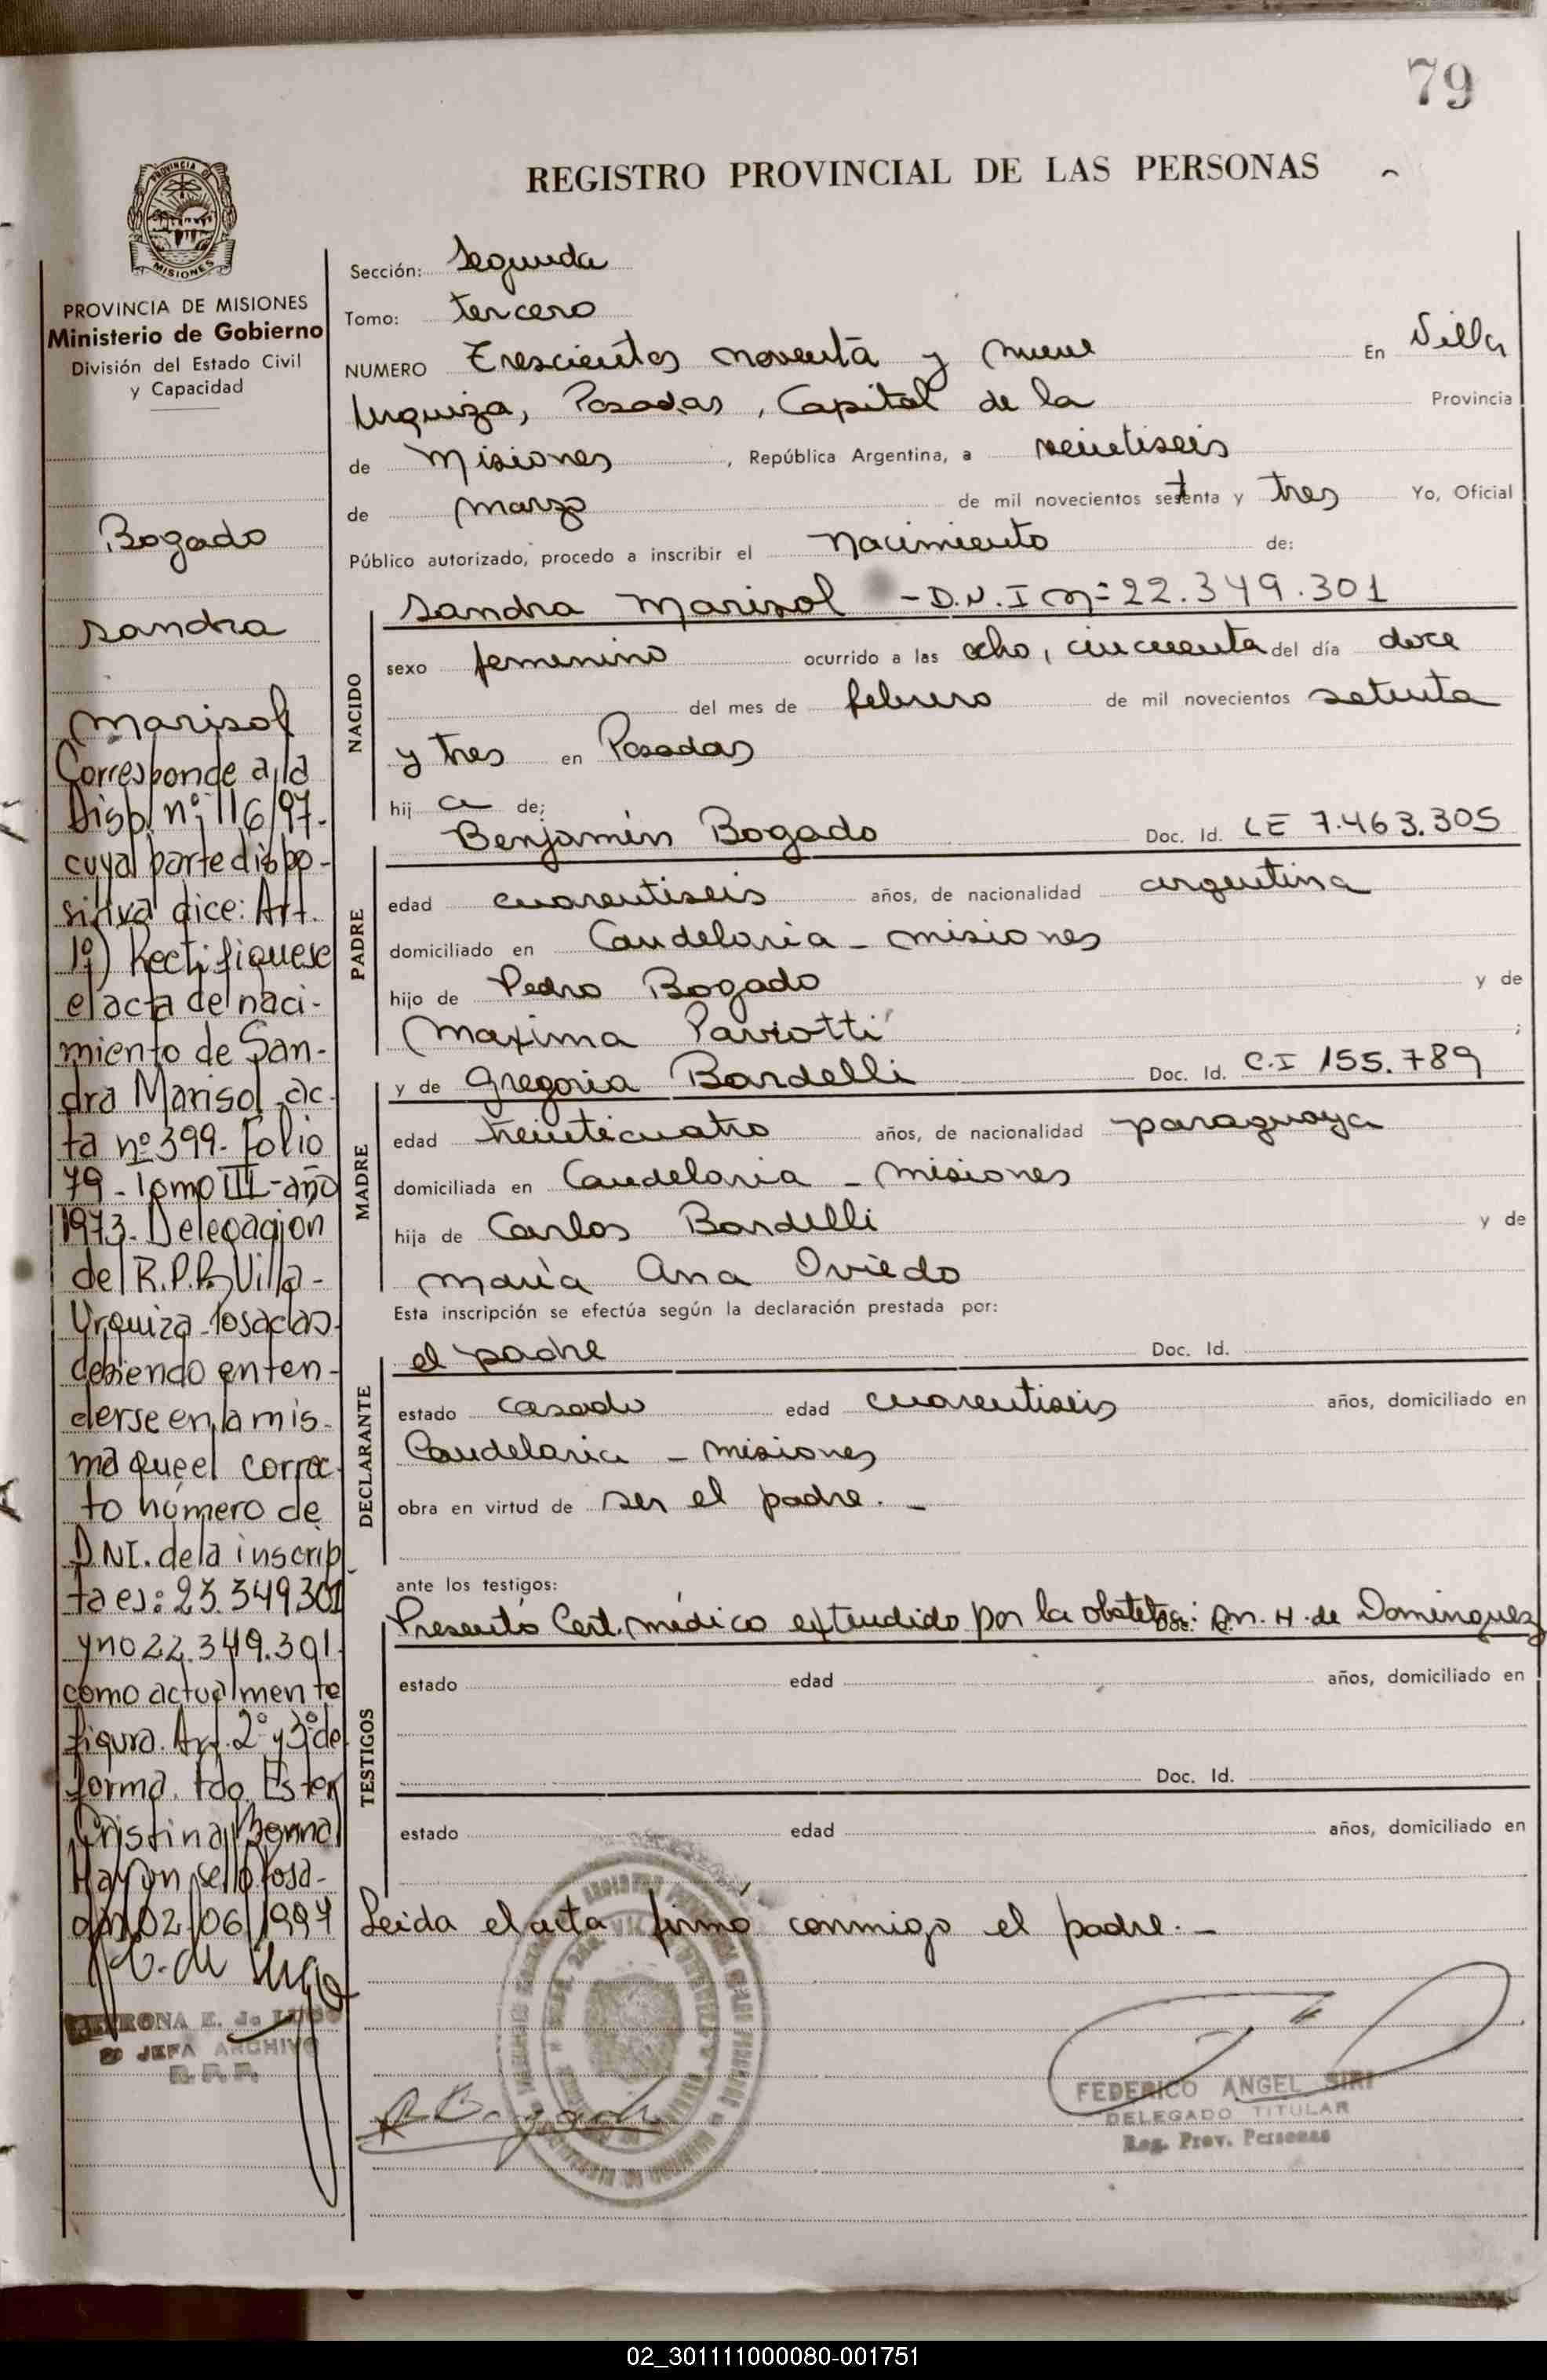 79
REGISTRO PROVINCIAL DE LAS PERSONAS
PROVINCIA DE MISIONES
Ministerio de Gobierno
División del Estado Civil
y Capacidad
Bogado
Sandra
Marisol
Corresponde a la
Disp. nº 116/97-
cuya parte dispo-
sitiva dice: Art.
1º) Rectifiquese
el acta de naci-
miento de San-
dra Marisol ac-
ta nº 399- Folio
79- Tomo III- año
1973- Delegación
del R.P.P. Villa-
Urquiza-Posadas-
debiendo enten-
derse en la mis-
ma que el correc-
to número de
D.N.I. de la inscrip
ta es: 23.349.301
y no 22.349.301.
como actualmente
figura. Art. 2º y 3º de
forma. Fdo. Ester
Cristina
Hay un sello. Posa-
das, 02/06/1997
PETRONA E. de LUGO
JEFA ARCHIVO
R.P.P.
Sección: Segunda
Tomo: tercero
NUMERO Trescientos noventa y nueve En Villa
Urquiza, Posadas, Capital de la Provincia
de Misiones, República Argentina, a veintiseis
de marzo de mil novecientos setenta y tres Yo, Oficial
Público autorizado, procedo a inscribir el nacimiento de:
NACIDO
Sandra Marisol - D.N.I nº 22.349.301
sexo femenino ocurrido a las ocho, cincuenta del día doce
del mes de febrero de mil novecientos setenta
y tres en Posadas
hij a de;
PADRE
Benjamín Bogado Doc. Id. LE 7.463.305
edad cuarentiseis años, de nacionalidad argentina
domiciliado en Candelaria - misiones
hijo de Pedro Bogado y de
Maxima Paviotti ;
MADRE
y de Gregoria Bardelli Doc. Id. C.I 155.789
edad treinticuatro años, de nacionalidad paraguaya
domiciliada en Candelaria - misiones
hija de Carlos Bardelli y de
maría Ana Oviedo
Esta inscripción se efectúa según la declaración prestada por:
DECLARANTE
el padre Doc. Id.
estado casado edad cuarentiseis años, domiciliado en
Candelaria - misiones
obra en virtud de ser el padre. -
ante los testigos:
TESTIGOS
Presentó Cert. médico extendido por la obstetra: H. de Dominguez
estado edad años, domiciliado en
Doc. Id.
estado edad años, domiciliado en
Leida el acta firmó conmigo el padre. -
FEDERICO ANGEL SIRI
DELEGADO TITULAR
Reg. Prov. Personas
02_301111000080-001751